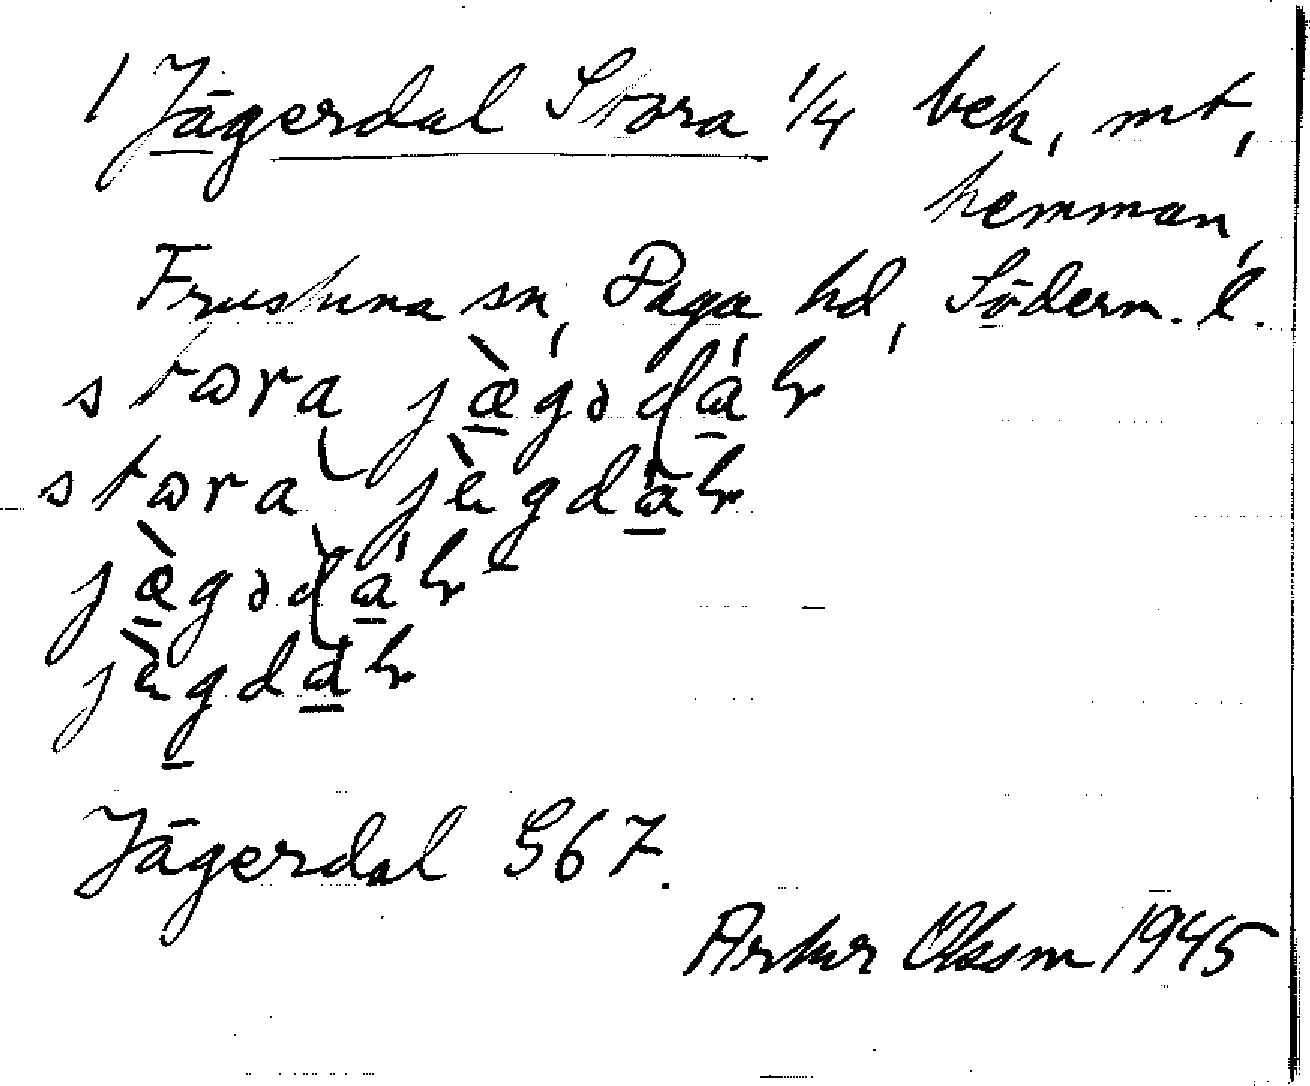 1 Jägerdal Stora 1/4 beh, mt,
hemman,
Frustuna sn, Daga hd, Söderm. l.
stora jæ̀gədál
stora jègdál
jæ̀gədál
jègdál
Jägerdal S67.
Artur Olssn 1945